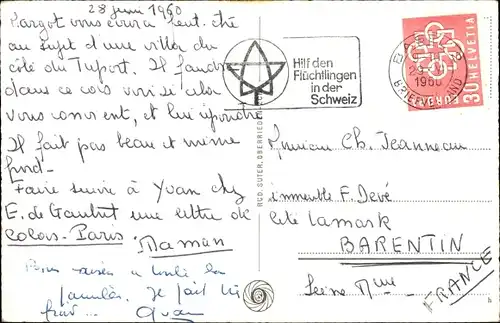 28 juin 1960
Margot vous écrira peut-être
au sujet d'une villa du
côté du Tuport. Il faudra
dans ce cas voir si cela
vous convient, et lui répondre
Il fait pas beau et même
froid.-
Faire suivre à Yvan chez
E. de Gaulut une lettre de
Colas-Paris.
Maman
la
famille. Je fait très
froid...
Hilf den
Flüchtlingen
in der
Schweiz
BASEL 2
1960
BRIEFVERSAND
EUROPA
30 HELVETIA
RUD. SUTER, OBERRIEDEN
Monsieur Ch. Jeanneau
immeuble F. Devé
Cité Lamark
BARENTIN
Seine Mme
FRANCE